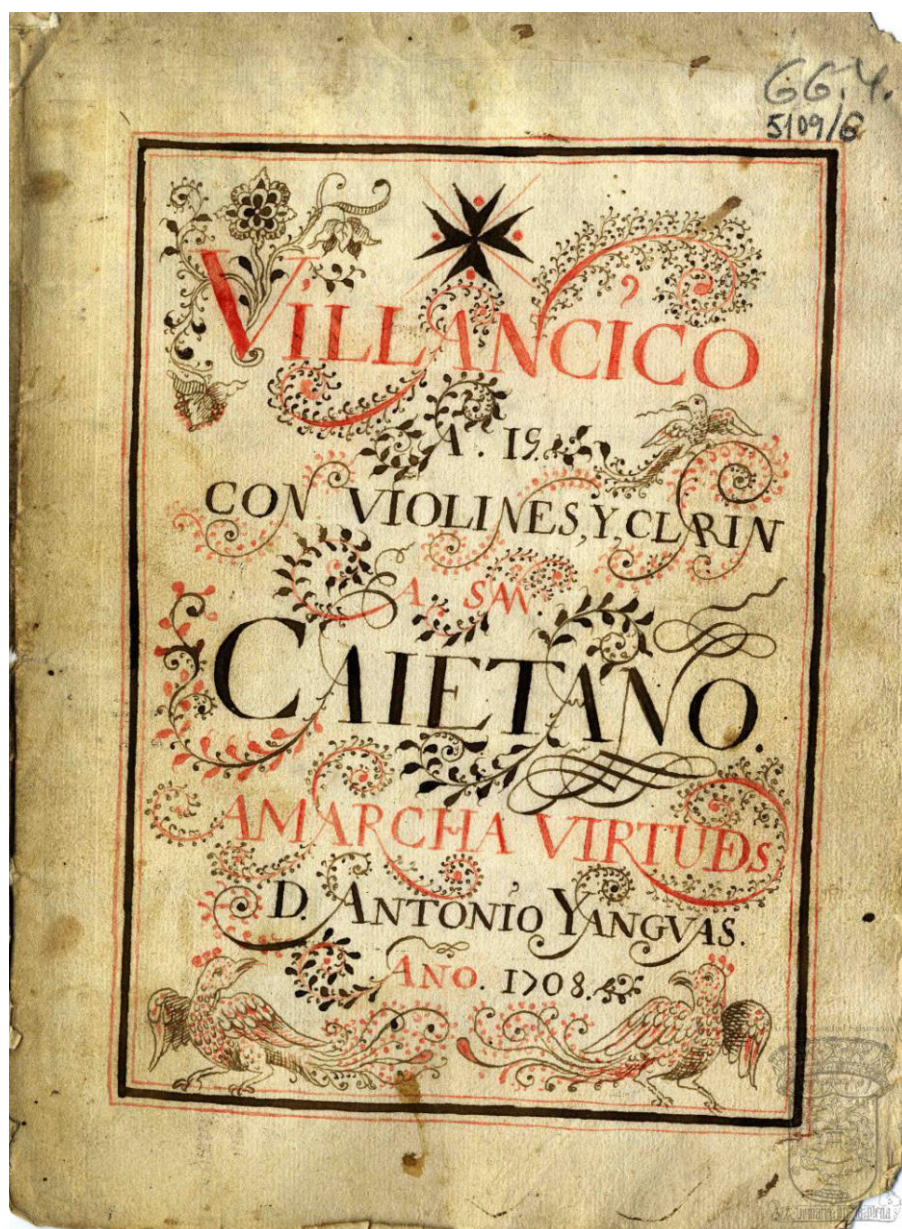 66.4.
5109/6
VILLANCICO
A. 15.
CON VIOLINES, Y, CLARIN
A SAN.
CAIETANO.
AMARCHA VIRTUDES
D. ANTONIO YANGVAS.
AÑO. 1708.